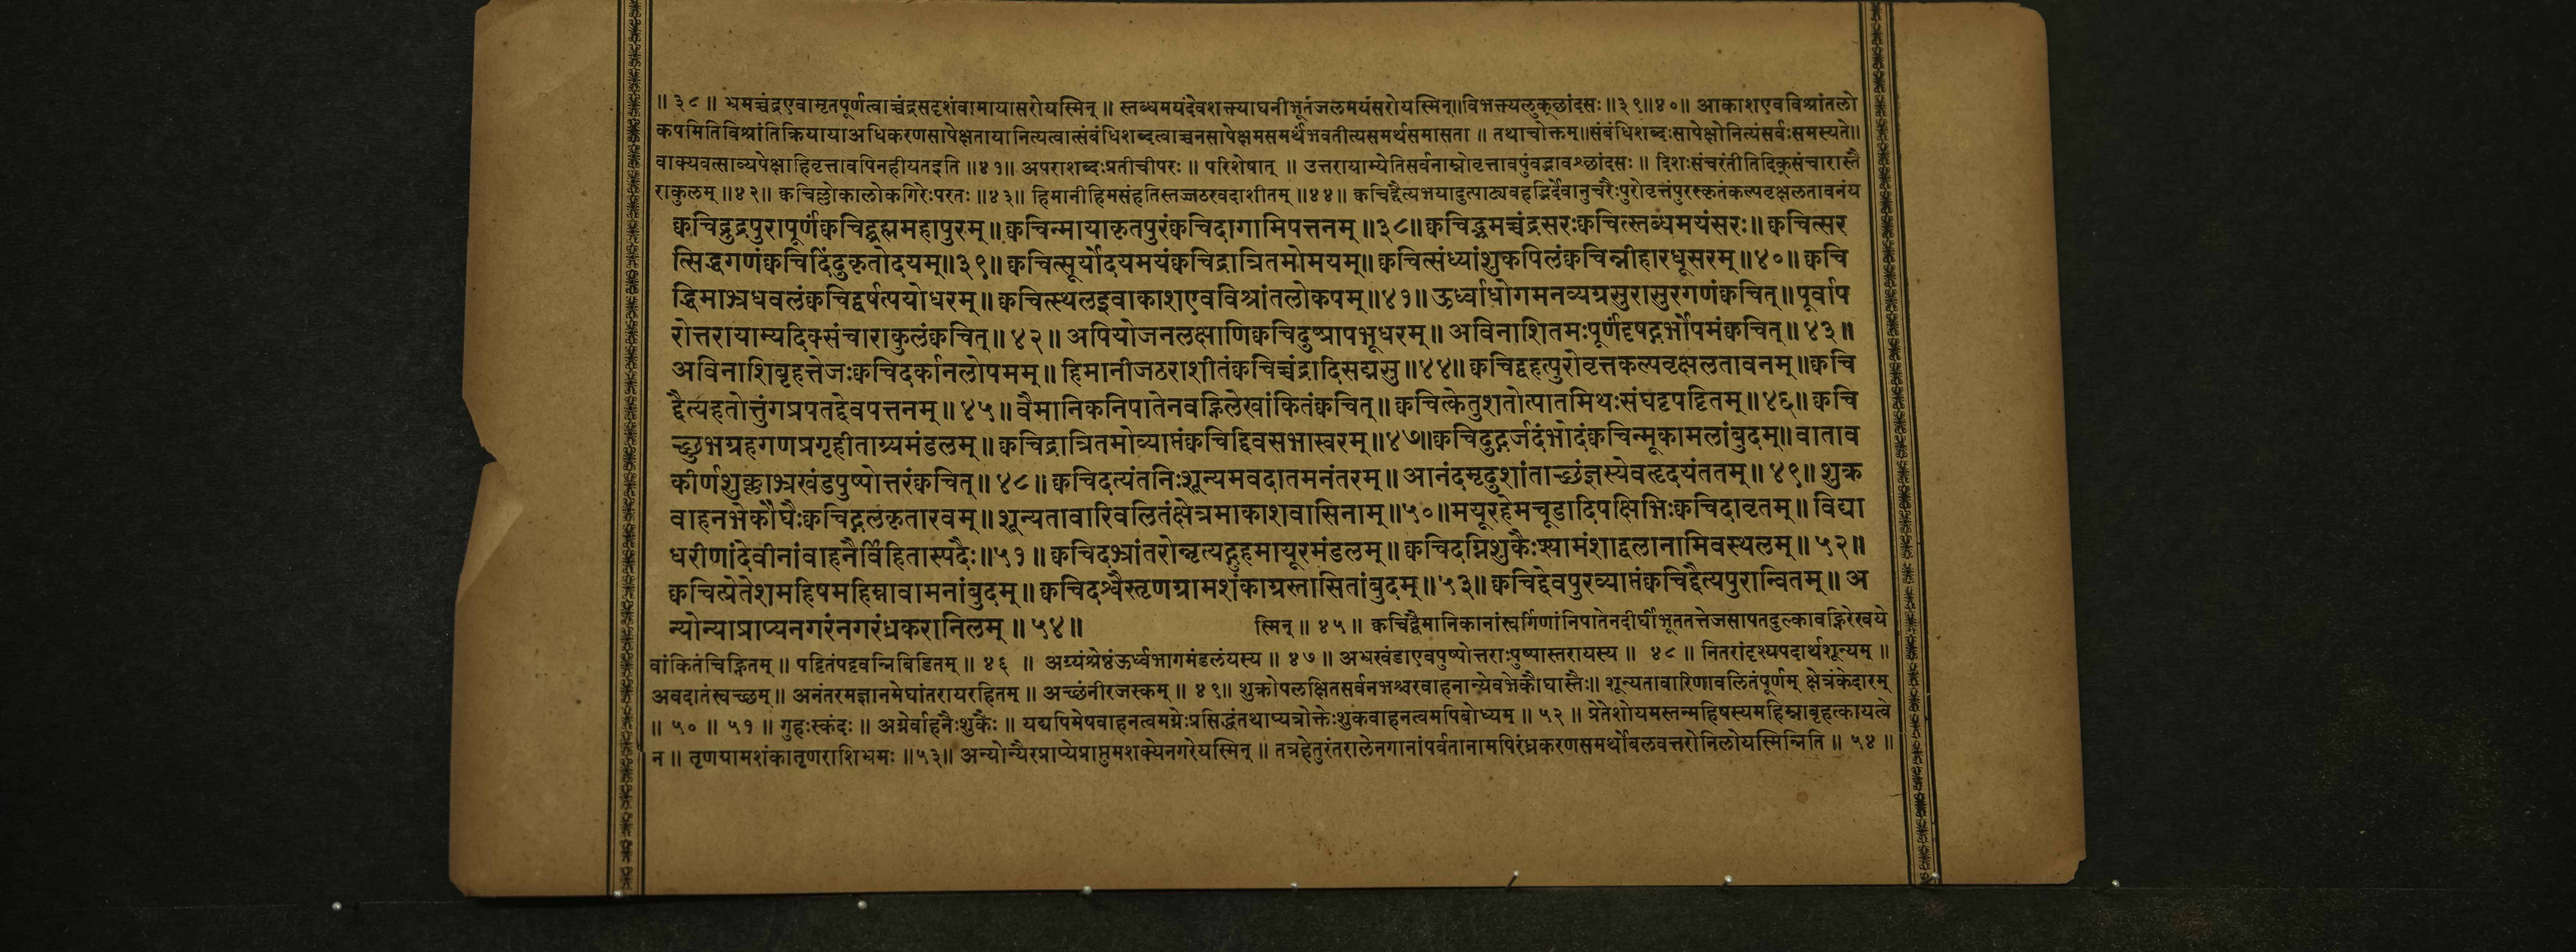 ॥ ३८ ॥ भ्रमच्चंद्रएवामृतपूर्णत्वाच्चंद्रसदृशंवामायासरोयस्मिन् ॥ स्तब्धमयंदेवशक्त्याघनीभूतंजलमयंसरोयस्मिन्॥विभक्त्यलुक्छांदसः॥३९॥४०॥ आकाशएवविश्रांतलो
कपमितिविश्रांतिक्रियायाअधिकरणसापेक्षतायानित्यत्वात्संबंधिशब्दत्वाच्चनसापेक्षमसमर्थंभवतीत्यसमर्थसमासता ॥ तथाचोक्तम्॥संबंधिशब्दःसापेक्षोनित्यंसर्वःसमस्यते॥
वाक्यवत्साव्यपेक्षाहिवृत्तावपिनहीयतइति ॥४१॥ अपराशब्दःप्रतीचीपरः ॥ परिशेषात् ॥ उत्तरायाम्येतिसर्वनाम्नोवृत्तावपुंवद्भावश्छांदसः ॥ दिशःसंचरंतीतिदिक्संचारास्तै
राकुलम् ॥४२॥ क्वचिल्लोकालोकगिरेःपरतः ॥४३॥ हिमानीहिमसंहतिस्तज्जठरवदाशीतम् ॥४४॥ क्वचिद्दैत्यभयादुत्पाट्यवहद्भिर्देवानुचरैःपुरोवृत्तंपुरस्कृतंकल्पवृक्षलतावनंय
क्वचिद्रुद्रपुरापूर्णंक्वचिद्ब्रह्ममहापुरम्॥क्वचिन्मायाकृतपुरंक्वचिदागामिपत्तनम् ॥३८॥क्वचिद्भ्रमच्चंद्रसरःक्वचित्स्तब्धमयंसरः॥ क्वचित्सर
त्सिद्धगणंक्वचिदिंदुकृतोदयम्॥३९॥ क्वचित्सूर्योदयमयंक्वचिद्रात्रितमोमयम्॥ क्वचित्संध्यांशुकपिलंक्वचिन्नीहारधूसरम्॥४०॥ क्वचि
द्धिमाभ्रधवलंक्वचिद्वर्षत्पयोधरम्॥ क्वचित्स्थलइवाकाशएवविश्रांतलोकपम्॥४१॥ ऊर्ध्वाधोगमनव्यग्रसुरासुरगणंक्वचित्॥ पूर्वाप
रोत्तरायाम्यदिक्संचाराकुलंक्वचित्॥ ४२॥ अपियोजनलक्षाणिक्वचिदुष्प्रापभूधरम्॥ अविनाशितमःपूर्णंदृषद्गर्भोपमंक्वचित्॥ ४३॥
अविनाशिबृहत्तेजःक्वचिदर्कानलोपमम्॥ हिमानीजठराशीतंक्वचिच्चंद्रादिसद्मसु ॥४४॥ क्वचिद्वहत्पुरोवृत्तकल्पवृक्षलतावनम्॥क्वचि
द्दैत्यहतोत्तुंगप्रपतद्देवपत्तनम्॥ ४५॥ वैमानिकनिपातेनवह्निलेखांकितंक्वचित्॥ क्वचित्केतुशतोत्पातमिथःसंघट्टपट्टितम्॥४६॥ क्वचि
च्छुभग्रहगणप्रगृहीताग्र्यमंडलम्॥ क्वचिद्रात्रितमोव्याप्तंक्वचिद्दिवसभास्वरम्॥४७॥क्वचिदुद्गर्जदंभोदंक्वचिन्मूकामलांबुदम्॥ वाताव
कीर्णशुक्लाभ्रखंडपुष्पोत्तरंक्वचित्॥ ४८॥ क्वचिदत्यंतनिःशून्यमवदातमनंतरम्॥ आनंदमृदुशांताच्छंज्ञस्येवहृदयंततम्॥ ४९॥ शुक्र
वाहनभेकौघैःक्वचिद्गलकृतारवम्॥ शून्यतावारिवलितंक्षेत्रमाकाशवासिनाम्॥५०॥मयूरहेमचूडादिपक्षिभिःक्वचिदावृतम्॥ विद्या
धरीणांदेवीनांवाहनैर्विहितास्पदैः॥५१॥ क्वचिदभ्रांतरोन्नृत्यद्गुहमायूरमंडलम्॥ क्वचिदग्निशुकैःश्यामंशाद्वलानामिवस्थलम्॥ ५२॥
क्वचित्प्रेतेशमहिषमहिम्नावामनांबुदम्॥ क्वचिदश्वैस्तृणग्रामशंकाग्रस्तासितांबुदम्॥५३॥ क्वचिद्देवपुरव्याप्तंक्वचिद्दैत्यपुरान्वितम्॥ अ
न्योन्याप्राप्यनगरंनगरंध्रकरानिलम् ॥ ५४॥ स्मिन् ॥ ४५॥ क्वचिद्वैमानिकानांस्वर्गिणांनिपातेनदीर्घीभूततत्तेजसापतदुल्कावह्निरेखये
वांकितंचिह्नितम् ॥ पट्टितंपट्टवन्निबिडितम् ॥ ४६ ॥ अग्र्यंश्रेष्ठंऊर्ध्वभागमंडलंयस्य ॥ ४७ ॥ अभ्रखंडाएवपुष्पोत्तराःपुष्पास्तरायस्य ॥ ४८ ॥ नितरांदृश्यपदार्थशून्यम् ॥
अवदातंस्वच्छम्॥ अनंतरमज्ञानमेघांतरायरहितम् ॥ अच्छंनीरजस्कम् ॥ ४९॥ शुक्रोपलक्षितसर्वनभश्चरवाहनान्येवभेकौघास्तैः॥ शून्यतावारिणावलितंपूर्णम् क्षेत्रंकेदारम्
॥ ५० ॥ ५१ ॥ गुहःस्कंदः ॥ अग्नेर्वाहनैःशुकैः ॥ यद्यपिमेषवाहनत्वमग्नेःप्रसिद्धंतथाप्यत्रोक्तेःशुकवाहनत्वमपिबोध्यम् ॥ ५२ ॥ प्रेतेशोयमस्तन्महिषस्यमहिम्नाबृहत्कायत्वे
न ॥ तृणग्रामशंकातृणराशिभ्रमः ॥५३॥ अन्योन्यैरप्राप्येप्राप्तुमशक्येनगरेयस्मिन् ॥ तत्रहेतुरंतरालेनगानांपर्वतानामपिरंध्रकरणसमर्थोबलवत्तरोनिलोयस्मिन्निति ॥ ५४ ॥